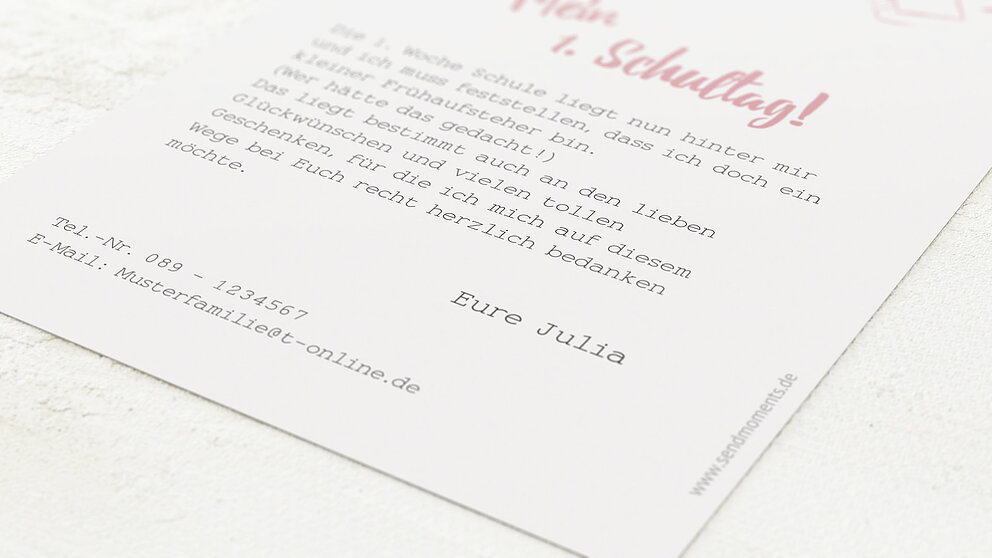 Mein
1. Schultag!
Die 1. Woche Schule liegt nun hinter mir
und ich muss feststellen, dass ich doch ein
kleiner Frühaufsteher bin.
(Wer hätte das gedacht!)
Das liegt bestimmt auch an den lieben
Glückwünschen und vielen tollen
Geschenken, für die ich mich auf diesem
Wege bei Euch recht herzlich bedanken
möchte.
Eure Julia
Tel.-Nr. 089 - 1234567
E-Mail: Musterfamilie@t-online.de
www.sendmoments.de